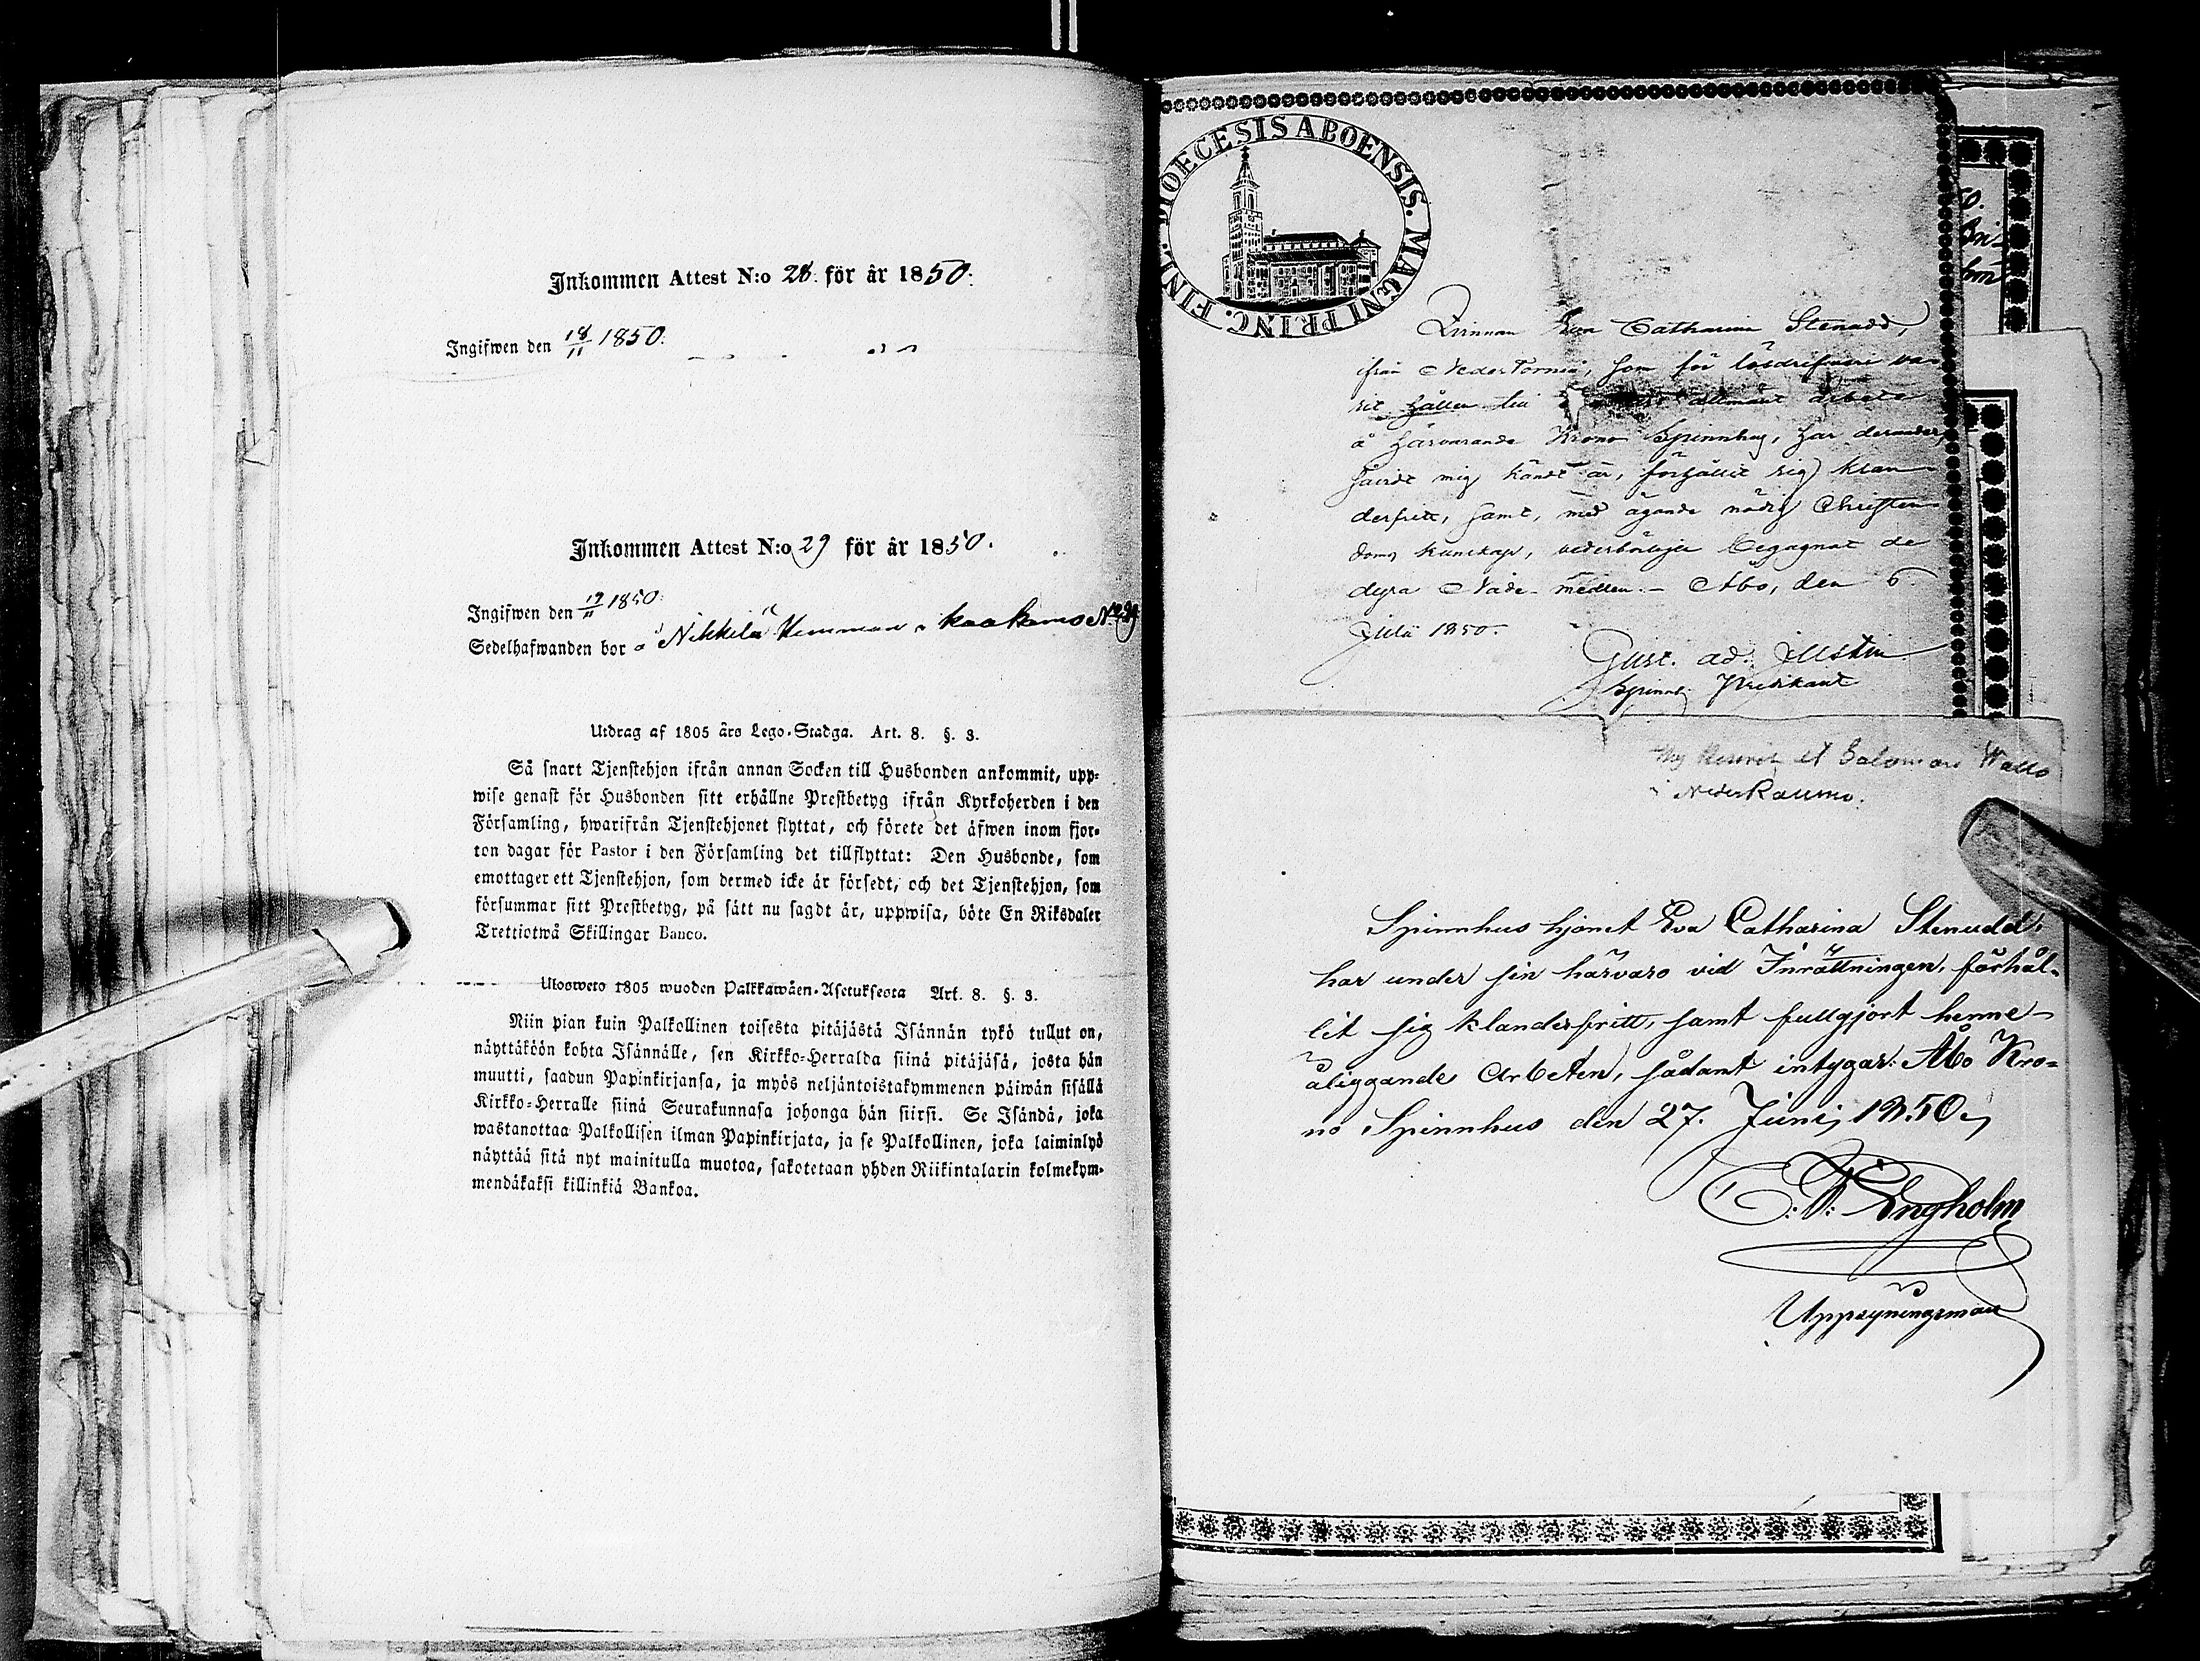 Inkommen Attest N:o 28. för år 1850.
Ingifwen den 18/11 1850.
Inkommen Attest N:o 29 för år 1850.
Ingifwen den 19/11 1850.
Sedelhafwanden bor å Nikkilä Hemman i Kaakamo N:o 29
Utdrag af 1805 års Lego-Stadga. Art. 8. §. 3.
Så snart Tjenstehjon ifrån annan Socken till Husbonden ankommit, upp-
wise genast för Husbonden sitt erhållne Prestbetyg ifrån Kyrkoherden i den
Församling, hwarifrån Tjenstehjonet flyttat, och förete det äfwen inom fjor-
ton dagar för Pastor i den Församling det tillflyttat: Den Husbonde, som
emottager ett Tjenstehjon, som dermed icke är försedt, och det Tjenstehjon, som
försummar sitt Prestbetyg, på sätt nu sagdt är, uppwisa, böte En Riksdaler
Trettiotwå Skillingar Banco.
Ulosweto 1805 wuoden Palkkawäen-Asetuksesta Art. 8. §. 3.
Niin pian kuin Palkollinen toisesta pitäjästä Isännän tykö tullut on,
näyttäköön kohta Isännälle, sen Kirkko-Herralda siinä pitäjäsä, josta hän
muutti, saadun Papinkirjansa, ja myös neljäntoistakymmenen päiwän sisällä
Kirkko-Herralle siinä Seurakunnasa johonga hän siirsi. Se Isändä, joka
wastanottaa Palkollisen ilman Papinkirjata, ja se Palkollinen, joka laiminlyö
näyttää sitä nyt mainitulla muotoa, sakotetaan yhden Riikintalarin kolmekym-
mendäkaksi killinkiä Bankoa.
DIOECESIS ABOENSIS. MAGNI PRINC. FINL.
Qvinnan Eva Catharina Stenudd,
ifrån Neder Torneå, som för lösdrifveri va-
rit hållen till allmänt arbete
å härvarande Krono Spinnhus, har derunder,
såvidt mig kändt är, förhållit sig klan-
derfritt, samt, med ägande nödig Christen-
doms kunskap, vederbörligen begagnat de
dyra Nåde-medlen. - Åbo, den 6
Julii 1850.
Gust. Ad.
Spinnh. Predikant
Salomon
Neder Raumo.
Spinnhus hjonet Eva Catharina Stenudd,
har under sin härvaro vid Inrättningen, förhål-
lit sig klanderfritt, samt fullgjort henne
åliggande Arbeten, sådant intygar: Åbo Kro-
no Spinnhus den 27. Junij 1850.
Engholm
Uppsyningsman